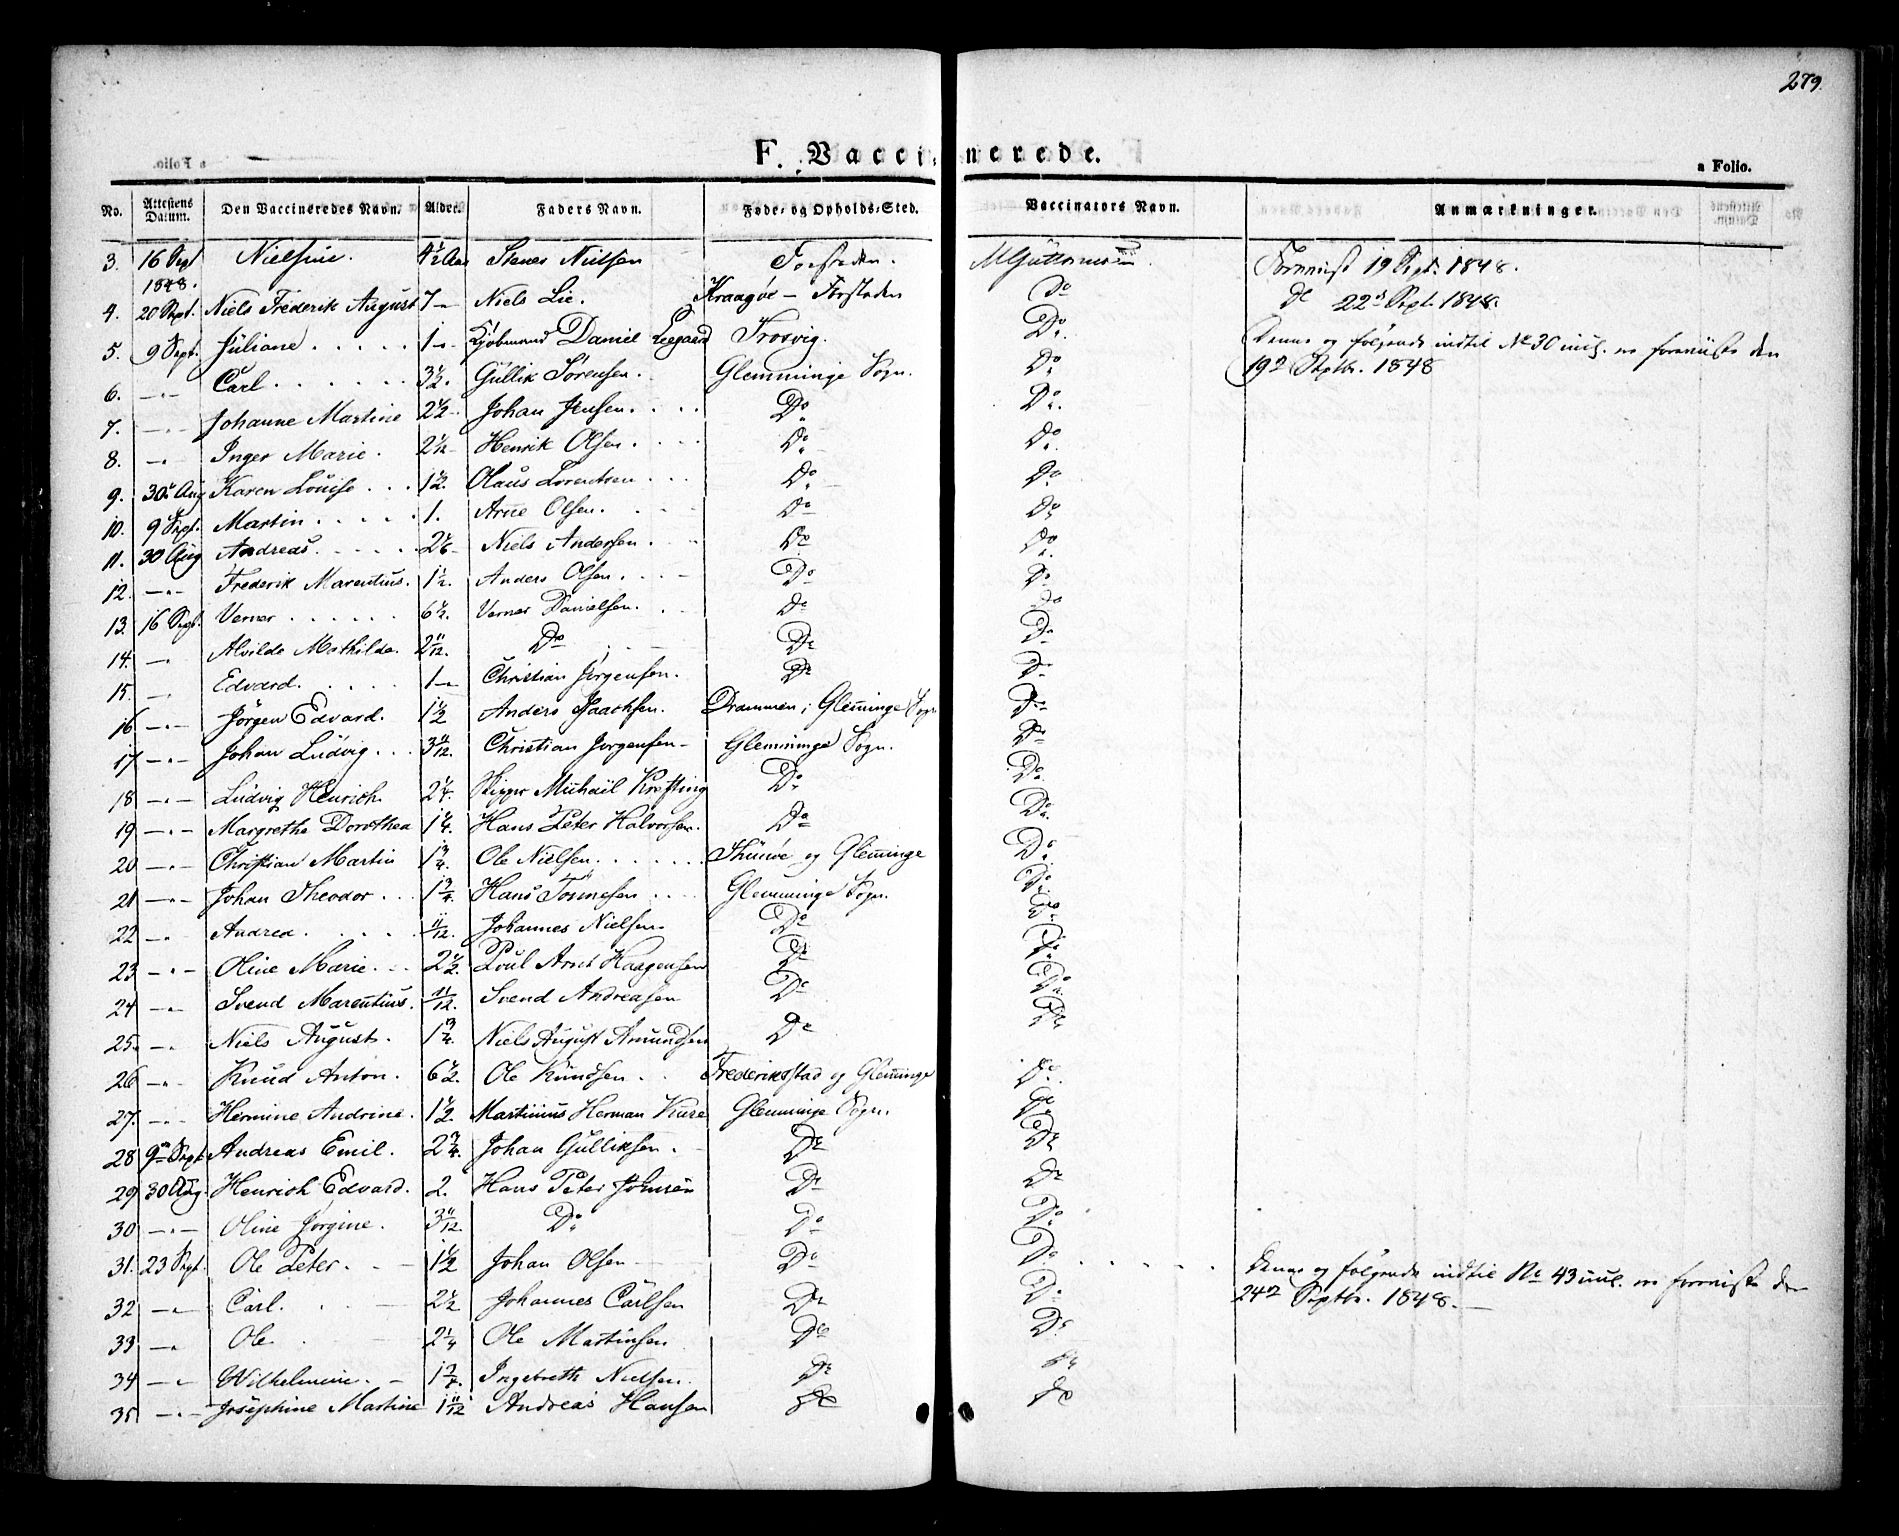 279.
F. Vaccinerede.
a Folio.
No. Attestens Datum. Den Vaccineredes Navn. Alder. Faders Navn. Føde- og Opholds-Sted. Vaccinators Navn. Anmærkninger.
3. 16 Sept 1848. Nielsine. 4 1/2 Aar Nielsen Forstaden. Fornviist 19 Sept. 1848.
4. 20 Sept. Niels Frederik August 7 - Niels Lie. Kraagøe - Forstaden Do do 22d Sept. 1848.
5. 9 Sept. Juliane 1 - Kjøbmand Daniel Leegaard Trosvig. Do. Denne og følgende indtil No 30 incl. ere fornviiste den
6. - " - Carl 3 1/2. Gullik Sørensen. Glemminge Sogn. Do 19de Septbr. 1848
7. - " - Johanne Martine 2 1/2 Johan Jensen. Do Do.
8. - " - Inger Marie. Henrik Olsen. Do Do
9. 30 Aug Karen Louise 1 1/2. Olaus Lorentsen Do Do
10. 9 Sept. Martin 1. Arne Olsen. Do Do
11. 30 Aug Andreas. Niels Andersen Do Do
12. - " - Frederik Marentius. 1 1/2. Anders Olsen. Do Do
13. 16 Sept. Verner 6 1/2. Verner Danielsen. Do Do
14. - " - Alvilde Mathilde. 2 11/12. Do Do Do
15. - " - Edvard. 1 - Christian Jørgensen. Do Do
16 - " - Jørgen Edvard. 1 1/2 Anders Isachsen. Drammen i Glemminge Sogn Do
17 - " - Johan Ludvig 3 11/12. Christian Jørgensen - Glemminge Sogn. Do
18 - " - Ludvig Henrich. 2 1/4. Skipper Michail Krefting Do Do
19 - " - Margrethe Dorothea 1 1/4. Hans Peter Halvorsen. Do Do
20 - " - Christian Martin 1 3/4. Ole Nielsen. og Glemminge Do
21 - " - Johan Theodor 1 3/4. Hans Tønnesen Glemminge Sogn. Do
22 - " Andrea. 11/12. Johannes Nielsen. Do Do
23 - " - Oline Marie. 2 1/2. Poul Arnt Haagensen Do Do
24 - " - Svend Marentius. 11/12. Svend Andreasen Do Do
25. - " Niels August. 1 3/4. Niels August Amundsen Do Do
26 - " Knud Anton. 6 1/2. Ole Knudsen Frederiksstad og Glemminge Do
27. - " Hermine Andrine. 1 1/2. Martinius Herman Kure Glemminge Sogn. Do
28 9de Sept Andreas Emil. 2 3/4. Johan Gulliksen. Do Do
29 30 Aug. Henrich Edvard. 2. Hans Peter Johnsen Do Do
30 - " - Oline Jørgine. 3 11/12. Do Do Do
31. 23 Sept. Ole Peter. 1 1/2 Johan Olsen Do Do Denne og følgende indtil No 43 incl. ere fornviiste den
32 - " Carl. 2 1/2 Johannes Carlsen Do Do 24de Septbr. 1848.
33 - " Ole 2 1/4 Ole Martinsen Do Do
34 - " Wilhelmine. Ingebreth Nielsen. Do Do
35 - " - Josephine Martine 1 11/12 Andreas Hansen Do Do